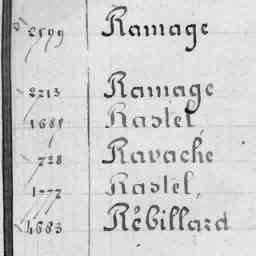 2599 Ramage
2213 Ramage
1685 Rastel
728 Ravaché
1777 Rastel,
4683 Rébillard